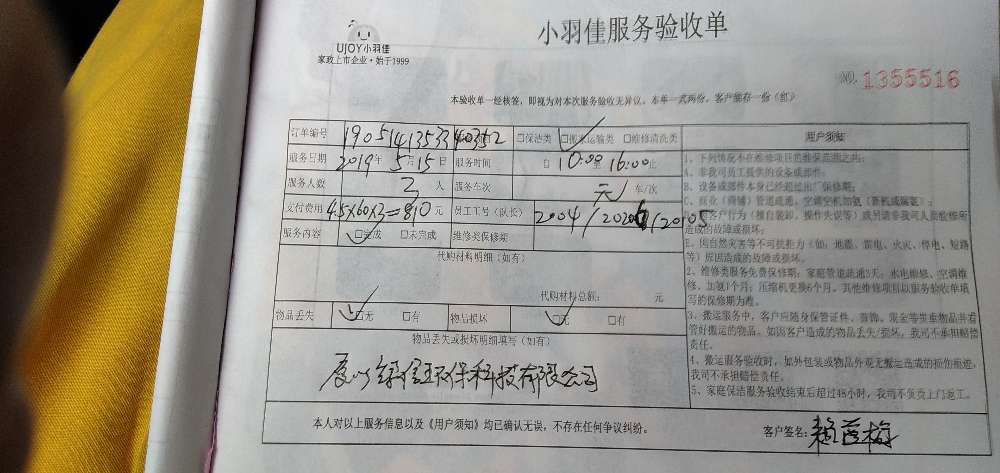 小羽佳服务验收单
UJOY小羽佳
家政上市企业·始于1999
NO. 1355516
本验收单一经核签，即视为对本次服务验收无异议。本单一式两份，客户留存一份（红）
订单编号 190514135334 40352 □保洁类 □搬家运输类 □维修清洗类
服务日期 2019年5月15日 服务时间 自10:00至16:00止
服务人数 3人 服务车次 元/ 车/次
支付费用 4.5×60×3=810元 员工工号（队长） 2004/20206/20105
服务内容 □完成 □未完成 维修类保修期
代购材料明细（如有）
代购材料总额： 元
物品丢失 □无 □有 物品损坏 □无 □有
物品丢失或损坏明细填写（如有）
环保科技有限公司
用户须知
1、下列情况不在维修项目的维保范围之内：
A、非我司员工提供的设备或部件；
B、设备或部件本身已经超过出厂保修期；
C、商业（商铺）管道疏通，空调空机加氨（新机或漏氨）；
客户行为（擅自装卸、操作失误等）或另请非我司人员检修所
造成的故障或损坏；
E、因自然灾害等不可抗拒力（如：地震、雷电、火灾、停电、短路
等）原因造成的故障或损坏。
2、维修类服务免费保修期：家庭管道疏通3天；水电维修、空调维
修、加氨1个月；压缩机更换6个月。其他维修项目以服务验收单填
写的保修期为准。
3、搬运服务中，客户应随身保管证件、首饰、现金等贵重物品并看
管好搬运的物品。如因客户造成的物品丢失/损坏，我司不承担赔偿
责任。
4、搬运服务验收时，如外包装或物品外观无搬运造成的损伤痕迹，
我司不承担赔偿责任。
5、家庭保洁服务验收结束后超过48小时，我司不负责上门返工。
本人对以上服务信息以及《用户须知》均已确认无误，不存在任何争议纠纷。
客户签名：赖莲梅